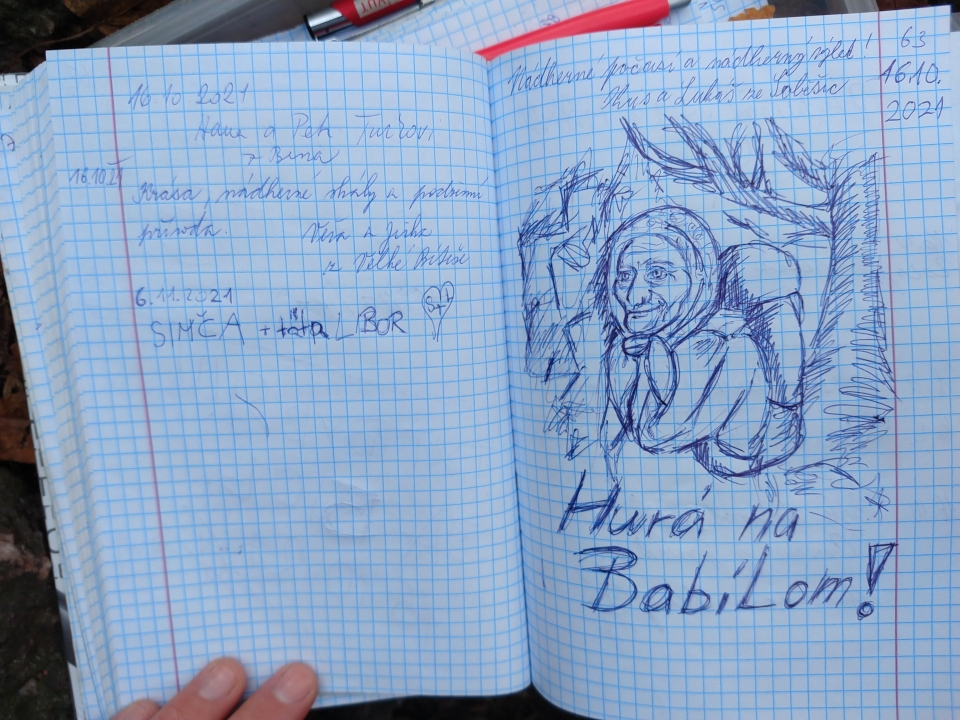 16 10 2021
Hana a Petr
+ Bena
16.10.21
Krása, nádherné skály a podzimní
příroda. Věra a Jirka
z Velké Bíteše
6.11.2021
SIMČA + LIBOR S+L
63
Nádherné počasí a nádherný výlet!
a Lukáš ze Soběšic
16.10.
2021
Hurá na
Babí Lom!